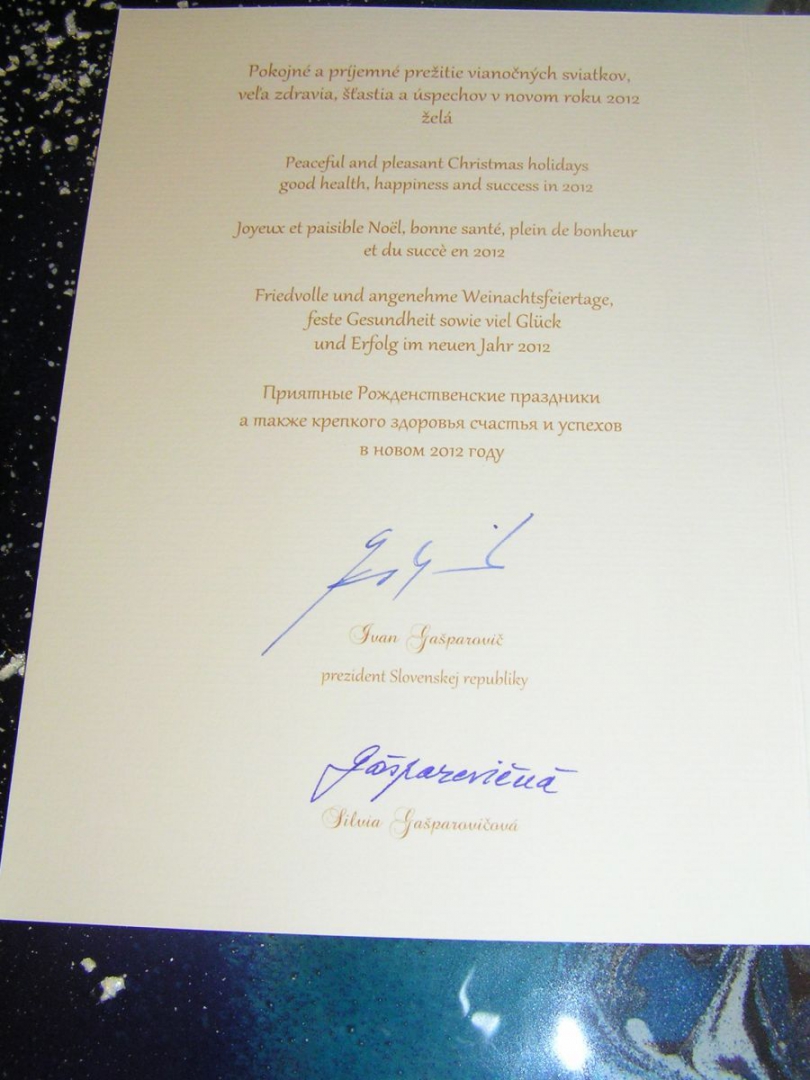 Pokojné a príjemné prežitie vianočných sviatkov,
veľa zdravia, šťastia a úspechov v novom roku 2012
želá
Peaceful and pleasant Christmas holidays
good health, happiness and success in 2012
Joyeux et paisible Noël, bonne santé, plein de bonheur
et du succè en 2012
Friedvolle und angenehme Weinachtsfeiertage,
feste Gesundheit sowie viel Glück
und Erfolg im neuen Jahr 2012
Приятные Рожденственские праздники
а также крепкого здоровья счастья и успехов
в новом 2012 году
Ivan Gašparovič
prezident Slovenskej republiky
Gašparovičová
Silvia Gašparovičová